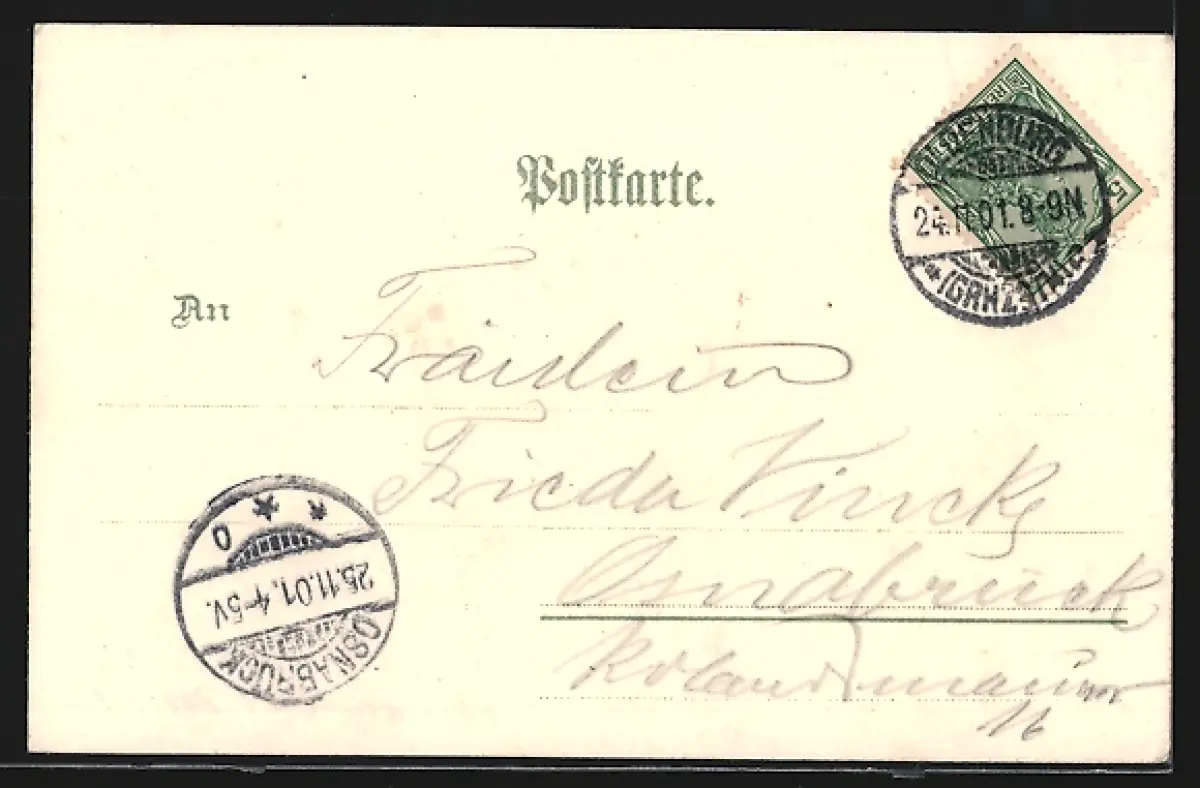 Postkarte.
OLDENBURG
24.11.01.8-9N.
* (GRHZGTH.) *
5
An
Fräulein
Frieda Vincke
Osnabrück
Rolandsmauer
16
OSNABRÜCK
25.11.01.4-5V.
* * o